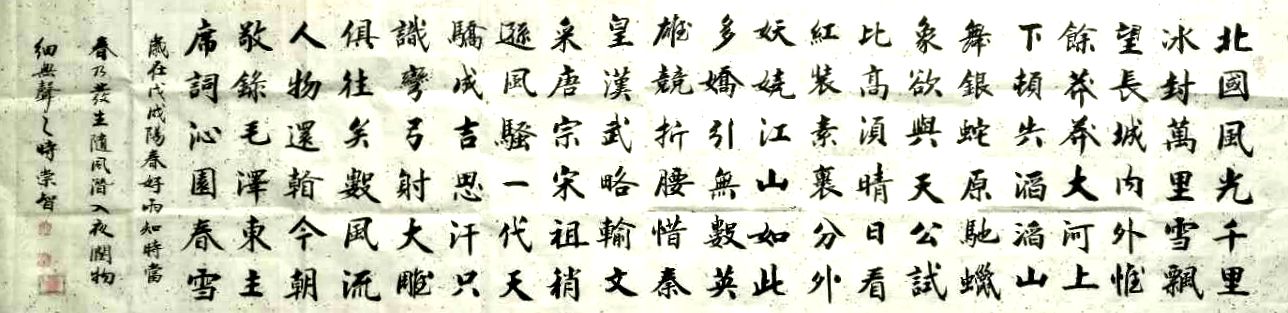 北國風光千里
冰封萬里雪飄
望長城内外惟
餘莽莽大河上
下頓失滔滔山
舞銀蛇原馳蠟
象欲與天公試
比高須晴日看
紅裝素裹分外
妖嬈江山如此
多嬌引無數英
雄競折腰惜秦
皇漢武略輸文
采唐宗宋祖稍
遜風騷一代天
驕成吉思汗只
識彎弓射大雕
俱往矣數風流
人物還看今朝
敬錄毛澤東主
席詞沁園春雪
歲在戊戌陽春好雨知時當
春乃發生隨風潛入夜潤物
細無聲之時崇智